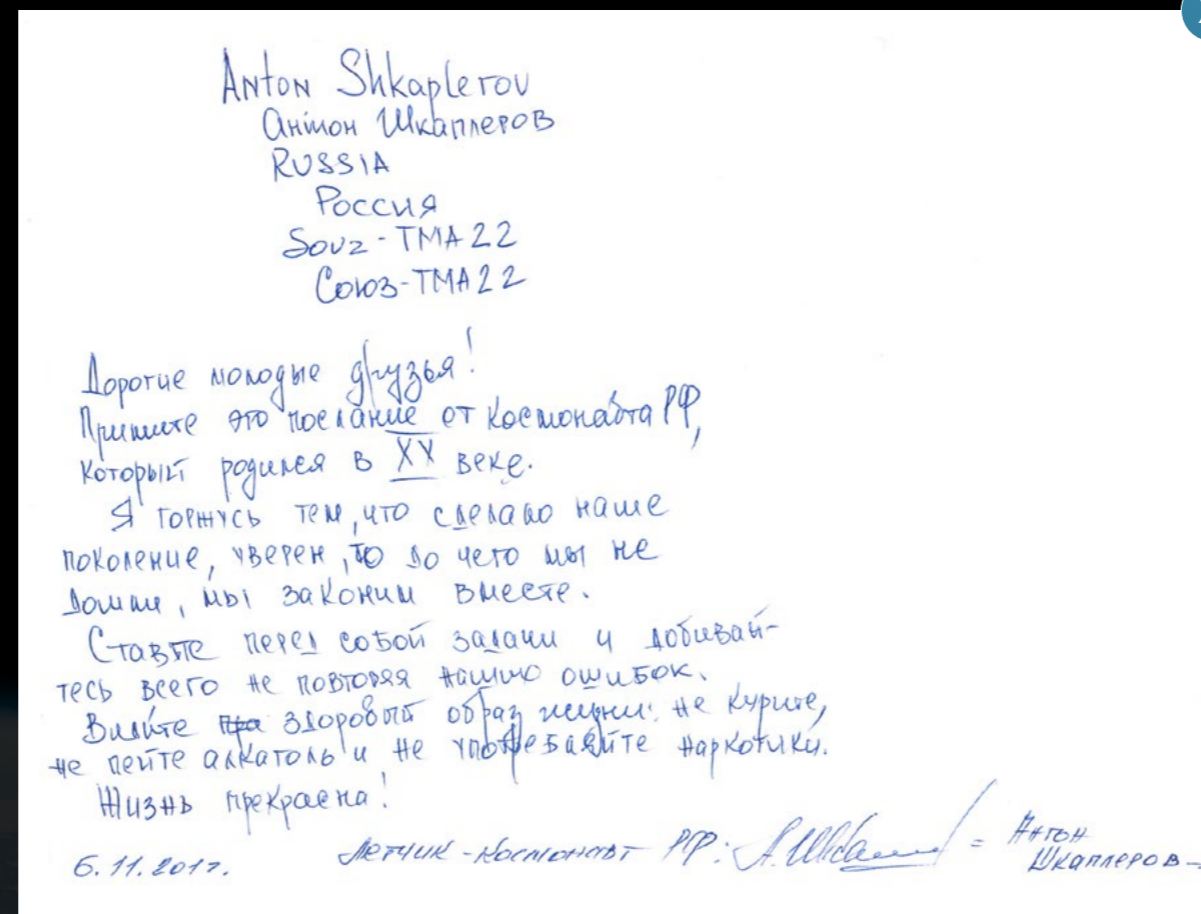 Anton Shkaplerov
Антон Шкаплеров
RUSSIA
Россия
Souz - TMA 22
Союз-ТМА 22
Дорогие молодые друзья!
Примите это послание от космонавта РФ,
который родился в XX веке.
Я горжусь тем, что сделало наше
поколение, уверен, то до чего мы не
дошли, мы закончим вместе.
Ставте перед собой задачи и добивай-
тесь всего не повторяя наших ошибок.
здоровый образ жизни: не курите,
не пейте алкаголь и не употребляйте наркотики.
Жизнь прекрасна!
6.11.2017.
Летчик-космонавт РФ: = Антон
Шкаплеров